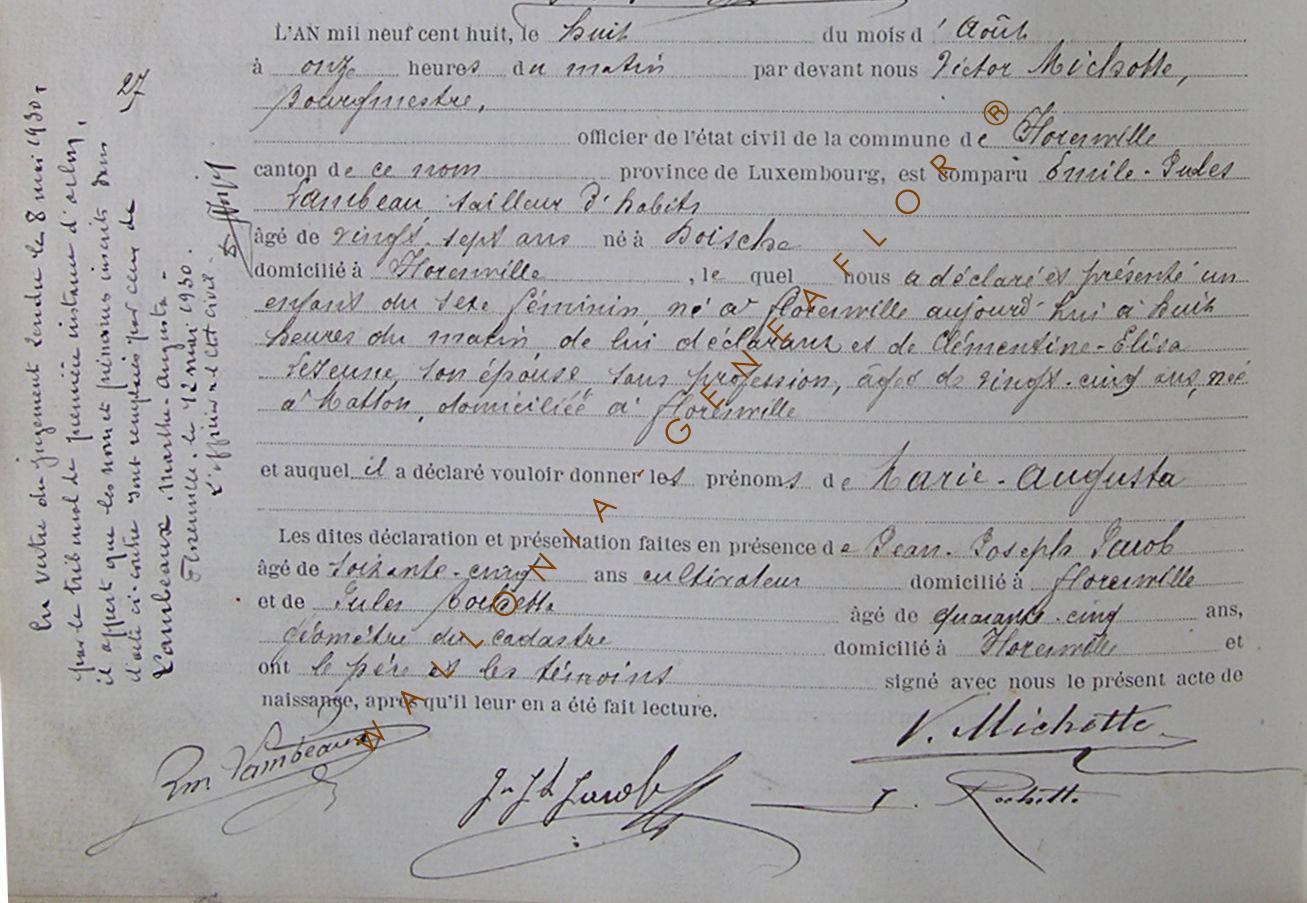 L'AN mil neuf cent huit, le huit du mois d' Août
à onze heures du matin par devant nous Victor Michotte,
Bourgmestre,
officier de l'état civil de la commune de Florenville
canton de ce nom province de Luxembourg, est comparu Emile-Jules
Lambeau, tailleur d'habits
âgé de vingt-sept ans né à Doische
domicilié à Florenville, le quel nous a déclaré et présenté un
enfant du sexe féminin né à Florenville aujourd'hui à huit
heures du matin de lui déclarant et de Clémentine-Elisa
Lejeune, son épouse sans profession, âgée de vingt-cinq ans, née
à Matton, domiciliée à Florenville
et auquel il a déclaré vouloir donner les prénoms de Marie-Augusta
Les dites déclaration et présentation faites en présence de Jean-Joseph Jacob
âgé de soixante-cinq ans cultivateur domicilié à Florenville
et de Jules Rochette âgé de quarante-cinq ans,
géomètre du cadastre domicilié à Florenville et
ont le père et les témoins signé avec nous le présent acte de
naissance, après qu'il leur en a été fait lecture.
Em. Lambeaux
V. Michotte
J. Jh Jacob
J. Rochette
27
En vertu du jugement rendu le 8 mai 1930,
par le tribunal de première instance d'Arlon,
il appert que les nom et prénoms inscrits dans
l'acte ci-contre sont remplacés par ceux de
Lambeaux Marthe-Augusta.
Florenville, le 12 mai 1930.
L'officier de l'Etat civil.
WALLONIA GENEAFLOR ®